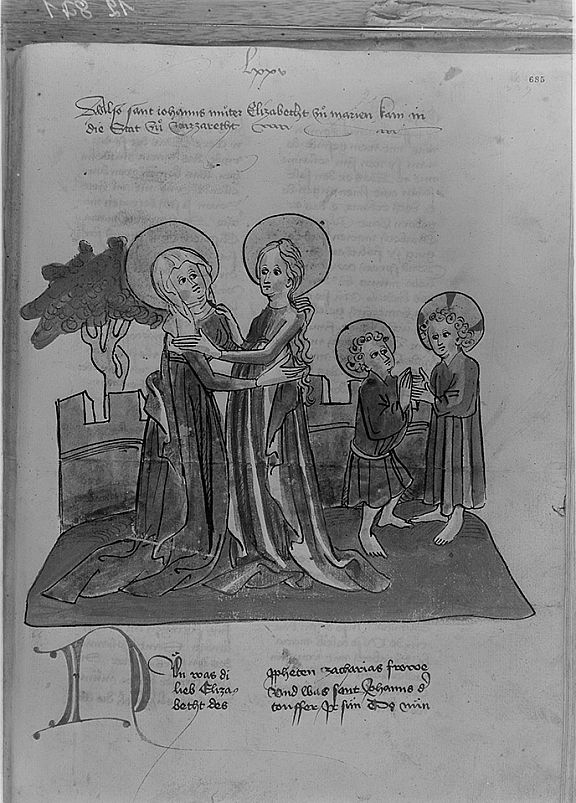 Lxxv
685
Alsо sant iohanns muͦter Elizabecht zuͦ marien kam in
die Stat zuͦ Nazzaretht
Nun was di
lieb Eliza-
betht des
ppheten zacharias frowe
Vnd was sant Johanns d
touffer Ir sun Do nun